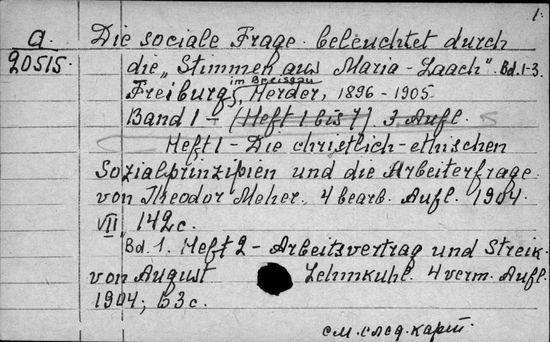 1.
a. Die sociale Frage beleuchtet durch
20515. die „Stimmen aus Maria-Laach". Bd. 1-3.
Freiburg im Breisgau, Herder, 1896-1905
Band 1 - (Heft 1 bis 7) 3 Aufl.
Heft 1 - Die christlich-ethischen
Sozialprinzipien und die Arbeiterfrage
von Theodor Meher. 4 bearb. Aufl. 1904.
VII, 142 c.
Bd. 1. Heft 2 - Arbeitsvertrag und Streik.
von August Lehmkuhl. 4 verm. Aufl.
1904; 63 c.
см. след. карт.